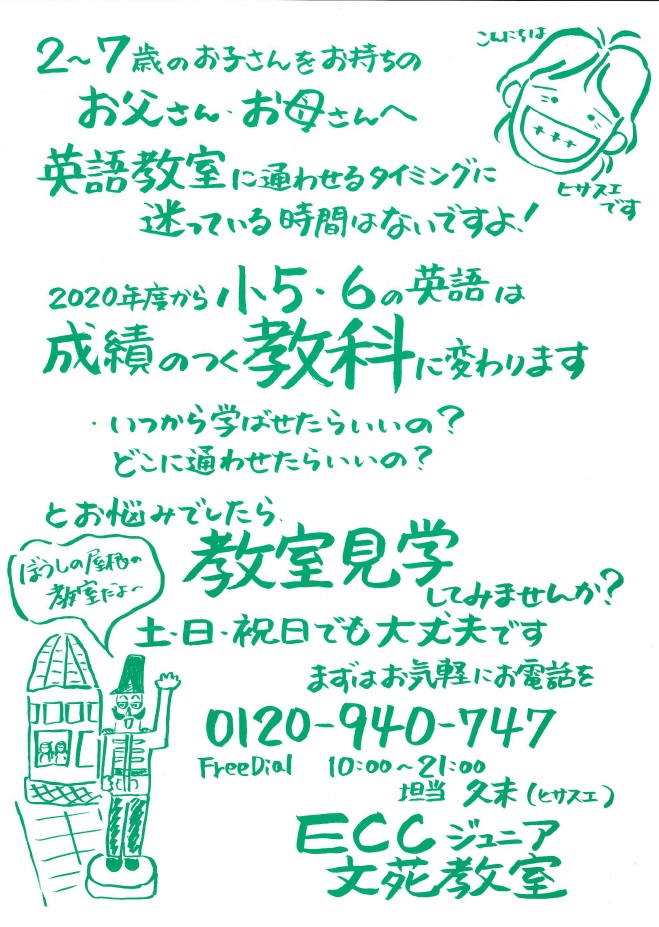 こんにちは
2〜7歳のお子さんをお持ちの
お父さん・お母さんへ
ヒサスエ
です
英語教室に通わせるタイミングに
迷っている時間はないですよ!
2020年度から小5・6の英語は
成績のつく教科に変わります
・いつから学ばせたらいいの?
どこに通わせたらいいの?
とお悩みでしたら、
教室見学
してみませんか?
ぼうしの屋根の
教室だよ〜
土・日・祝日でも大丈夫です
まずはお気軽にお電話を
0120-940-747
FreeDial 10:00〜21:00
担当 久末(ヒサスエ)
ECCジュニア
文苑教室